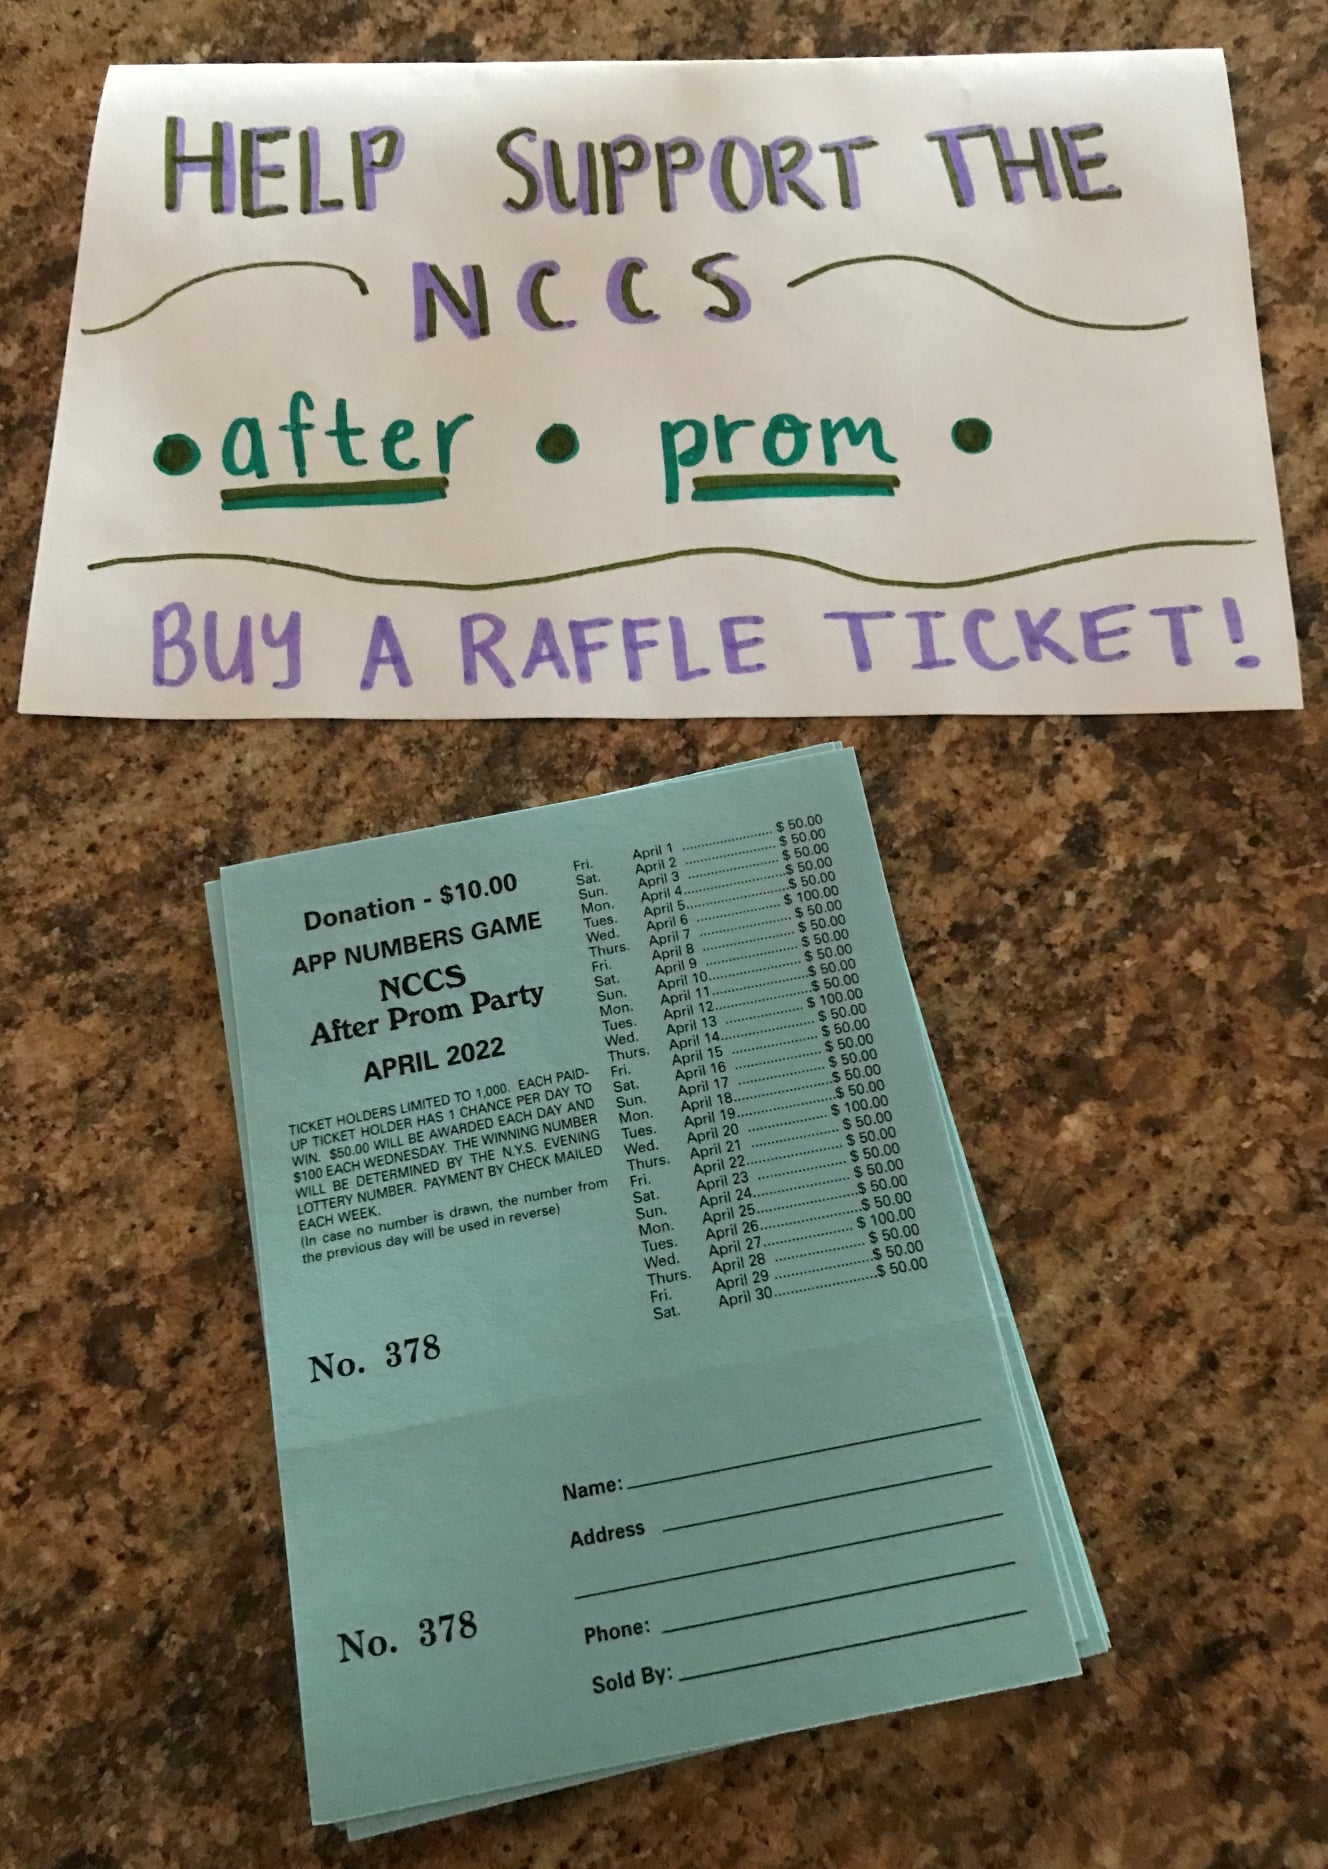 HELP SUPPORT THE
NCCS
• after • prom •
BUY A RAFFLE TICKET!
Donation - $10.00
APP NUMBERS GAME
NCCS
After Prom Party
APRIL 2022
TICKET HOLDERS LIMITED TO 1,000. EACH PAID-
UP TICKET HOLDER HAS 1 CHANCE PER DAY TO
WIN. $50.00 WILL BE AWARDED EACH DAY AND
$100 EACH WEDNESDAY. THE WINNING NUMBER
WILL BE DETERMINED BY THE N.Y.S. EVENING
LOTTERY NUMBER. PAYMENT BY CHECK MAILED
EACH WEEK.
(In case no number is drawn, the number from
the previous day will be used in reverse)
Fri. April 1 $ 50.00
Sat. April 2 $ 50.00
Sun. April 3 $ 50.00
Mon. April 4 $ 50.00
Tues. April 5 $ 50.00
Wed. April 6 $ 100.00
Thurs. April 7 $ 50.00
Fri. April 8 $ 50.00
Sat. April 9 $ 50.00
Sun. April 10 $ 50.00
Mon. April 11 $ 50.00
Tues. April 12 $ 50.00
Wed. April 13 $ 100.00
Thurs. April 14 $ 50.00
Fri. April 15 $ 50.00
Sat. April 16 $ 50.00
Sun. April 17 $ 50.00
Mon. April 18 $ 50.00
Tues. April 19 $ 50.00
Wed. April 20 $ 100.00
Thurs. April 21 $ 50.00
Fri. April 22 $ 50.00
Sat. April 23 $ 50.00
Sun. April 24 $ 50.00
Mon. April 25 $ 50.00
Tues. April 26 $ 50.00
Wed. April 27 $ 100.00
Thurs. April 28 $ 50.00
Fri. April 29 $ 50.00
Sat. April 30 $ 50.00
No. 378
Name:
Address
Phone:
Sold By:
No. 378